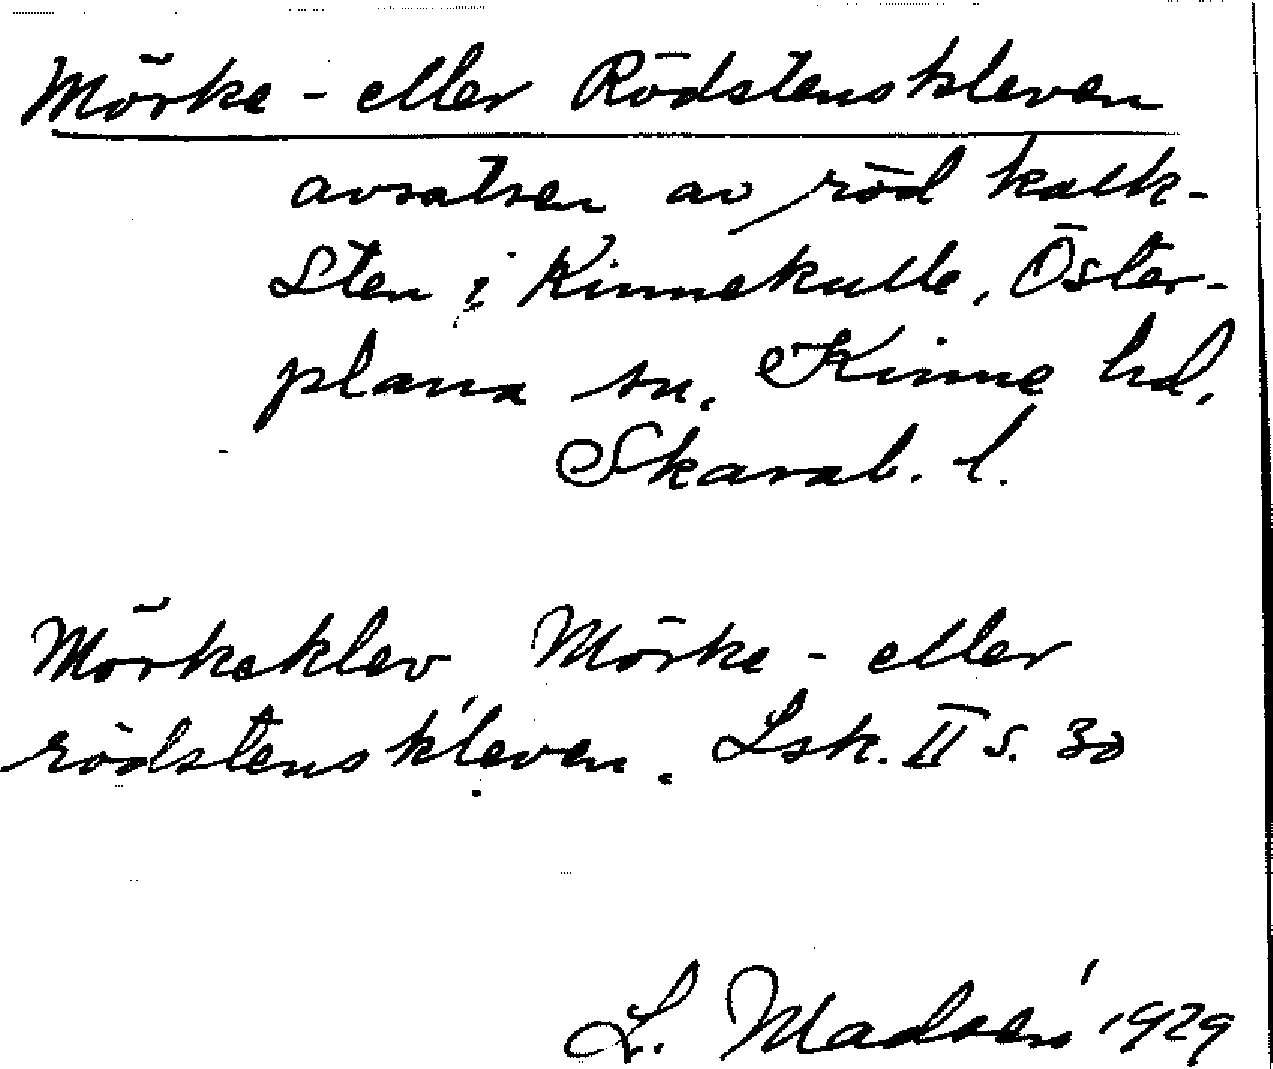 Mörke- eller Rödstenskleven
avsatsen av röd kalk-
sten i Kinnekulle, Öster-
plana sn. Kinne hd,
Skarab. l.
Mörkeklev Mörke- eller
rödstenskleven. Lsk. II s. 30
L. Madsén 1929